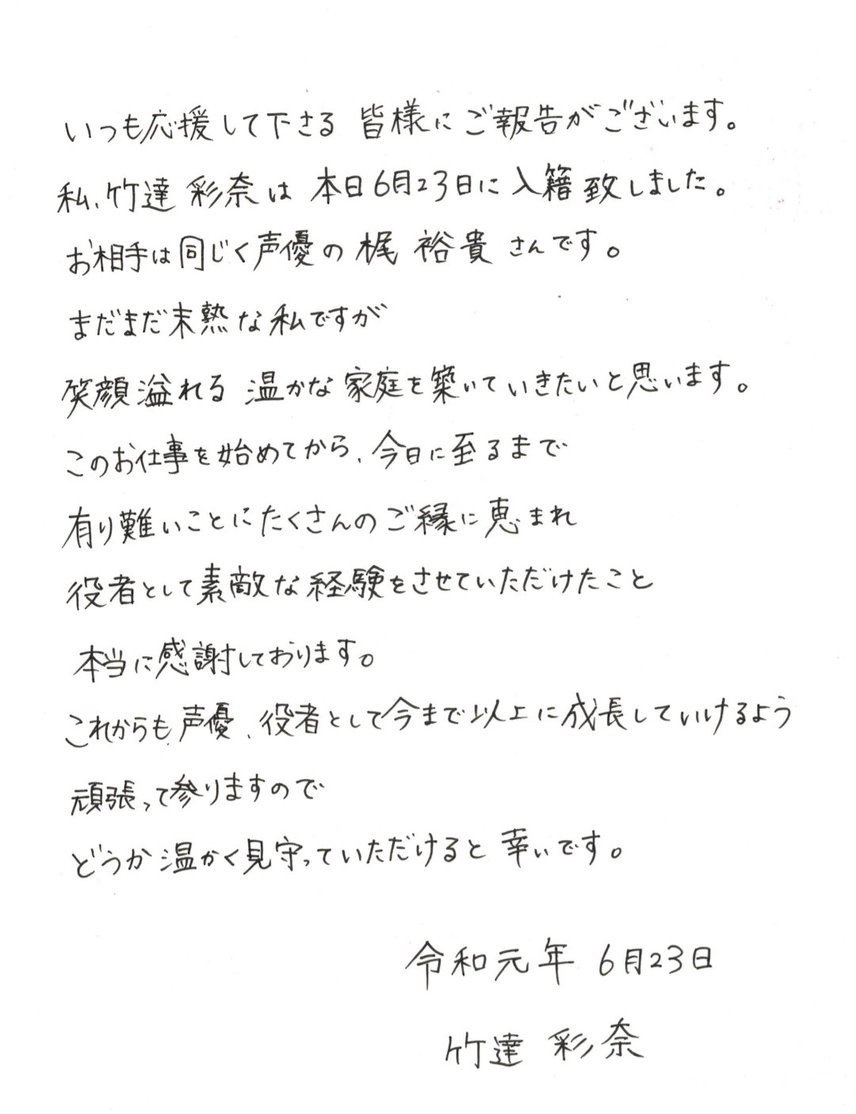 いつも応援して下さる 皆様にご報告がございます。
私、竹達 彩奈は 本日6月23日に入籍致しました。
お相手は同じく声優の 梶 裕貴 さんです。
まだまだ未熟な私ですが
笑顔溢れる 温かな家庭を築いていきたいと思います。
このお仕事を始めてから、今日に至るまで
有り難いことにたくさんのご縁に恵まれ
役者として素敵な経験をさせていただけたこと
本当に感謝しております。
これからも、声優、役者として今まで以上に成長していけるよう
頑張って参りますので
どうか温かく見守っていただけると 幸いです。
令和元年 6月23日
竹達 彩奈